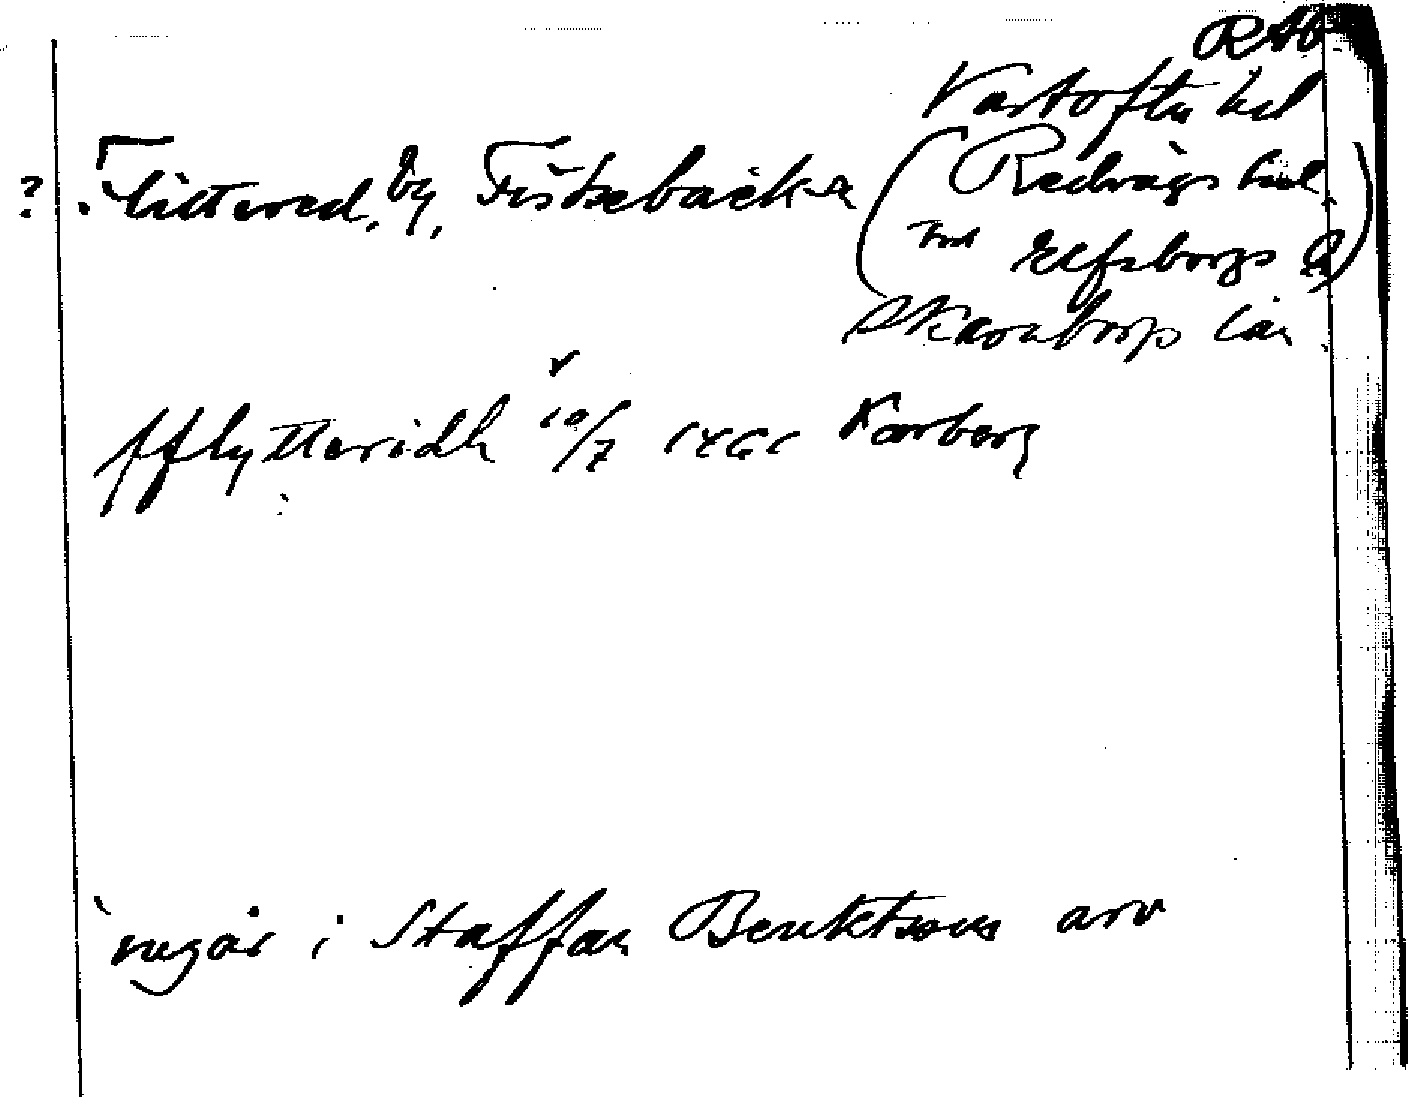 RAÖ
Vartofta hd
? Flittered, by, Fiskebäck (Redvägs hd.
Elfsborgs l)
Skaraborgs län
fflytteridh 10/7 1461 Karborg
ingår i Staffan Benktsons arv